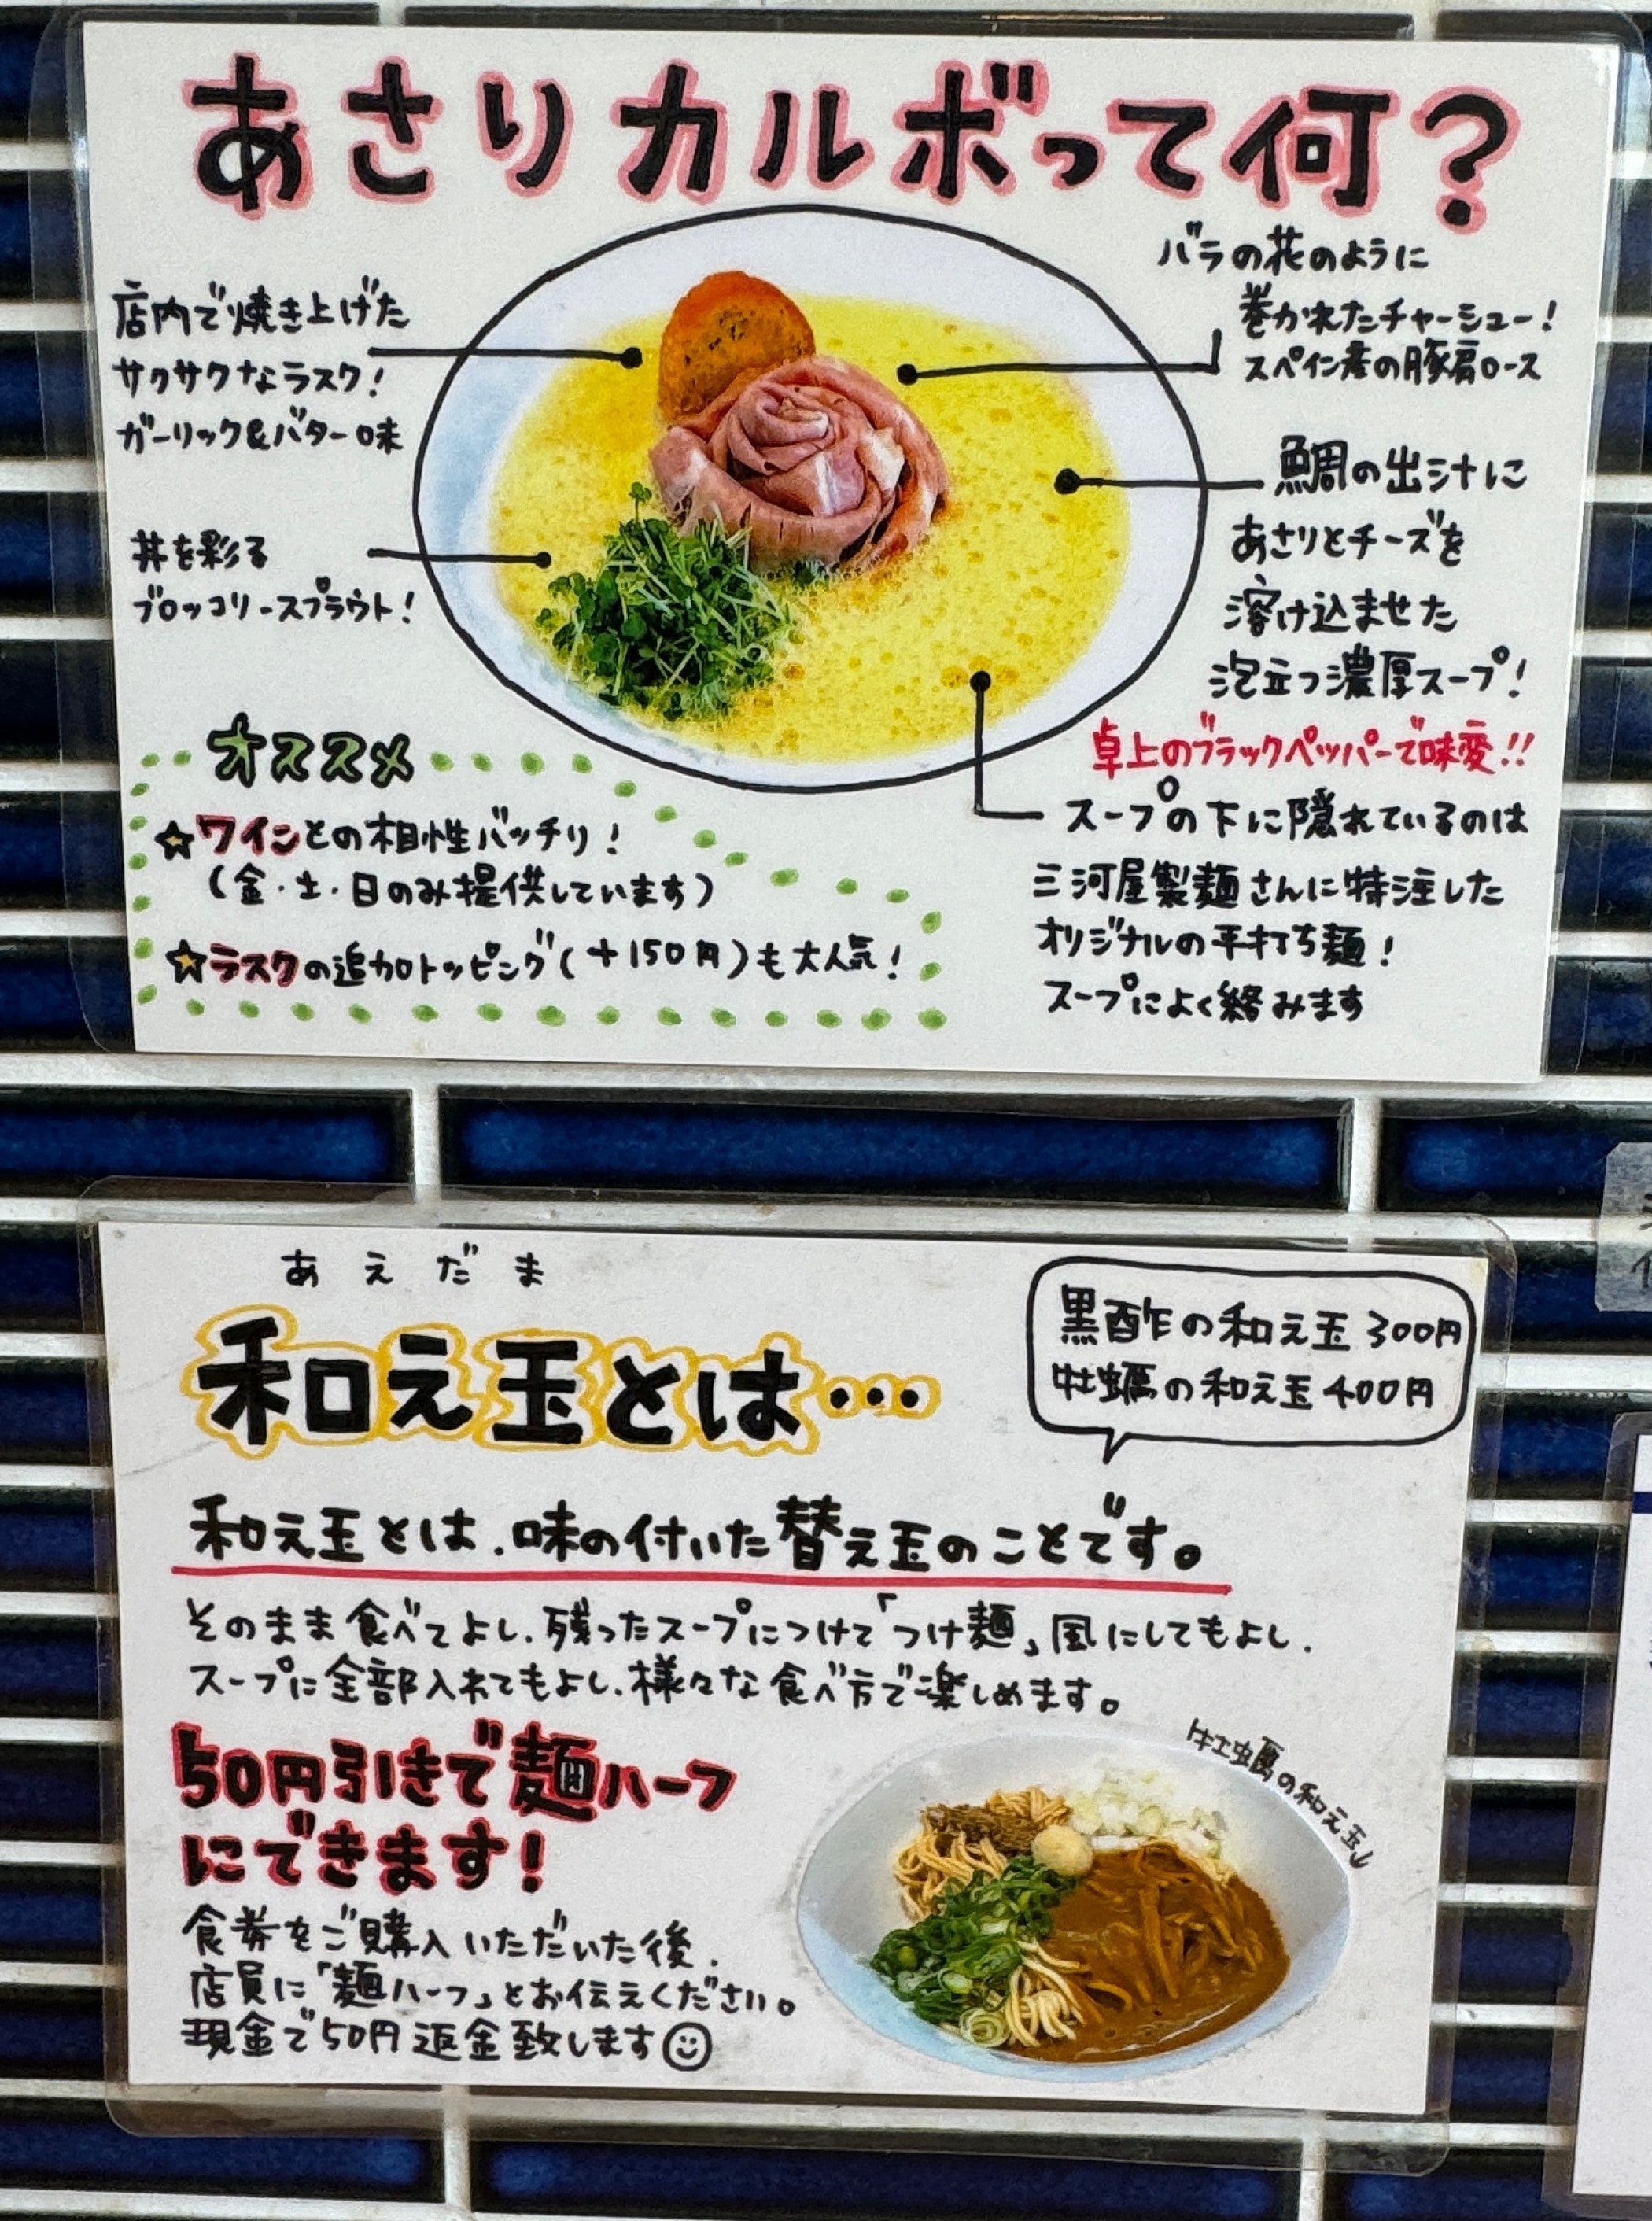 あさりカルボって何？
店内で焼き上げた
サクサクなラスク！
ガーリック&バター味
丼を彩る
ブロッコリースプラウト！
バラの花のように
巻かれたチャーシュー！
スペイン産の豚肩ロース
鯛の出汁に
あさりとチーズを
溶け込ませた
泡立つ濃厚スープ！
卓上のブラックペッパーで味変!!
スープの下に隠れているのは
三河屋製麺さんに特注した
オリジナルの平打ち麺！
スープによく絡みます
オススメ
☆ワインとの相性バッチリ！
(金・土・日のみ提供しています)
☆ラスクの追加トッピング(+150円)も大人気！
あえだま
和え玉とは…
黒酢の和え玉 300円
牡蠣の和え玉 400円
和え玉とは、味の付いた替え玉のことです。
そのまま食べてよし、残ったスープにつけて「つけ麺」風にしてもよし、
スープに全部入れてもよし、様々な食べ方で楽しめます。
50円引きで麺ハーフ
にできます！
食券をご購入いただいた後、
店員に「麺ハーフ」とお伝えください。
現金で50円返金致します☺
「牡蠣の和え玉」